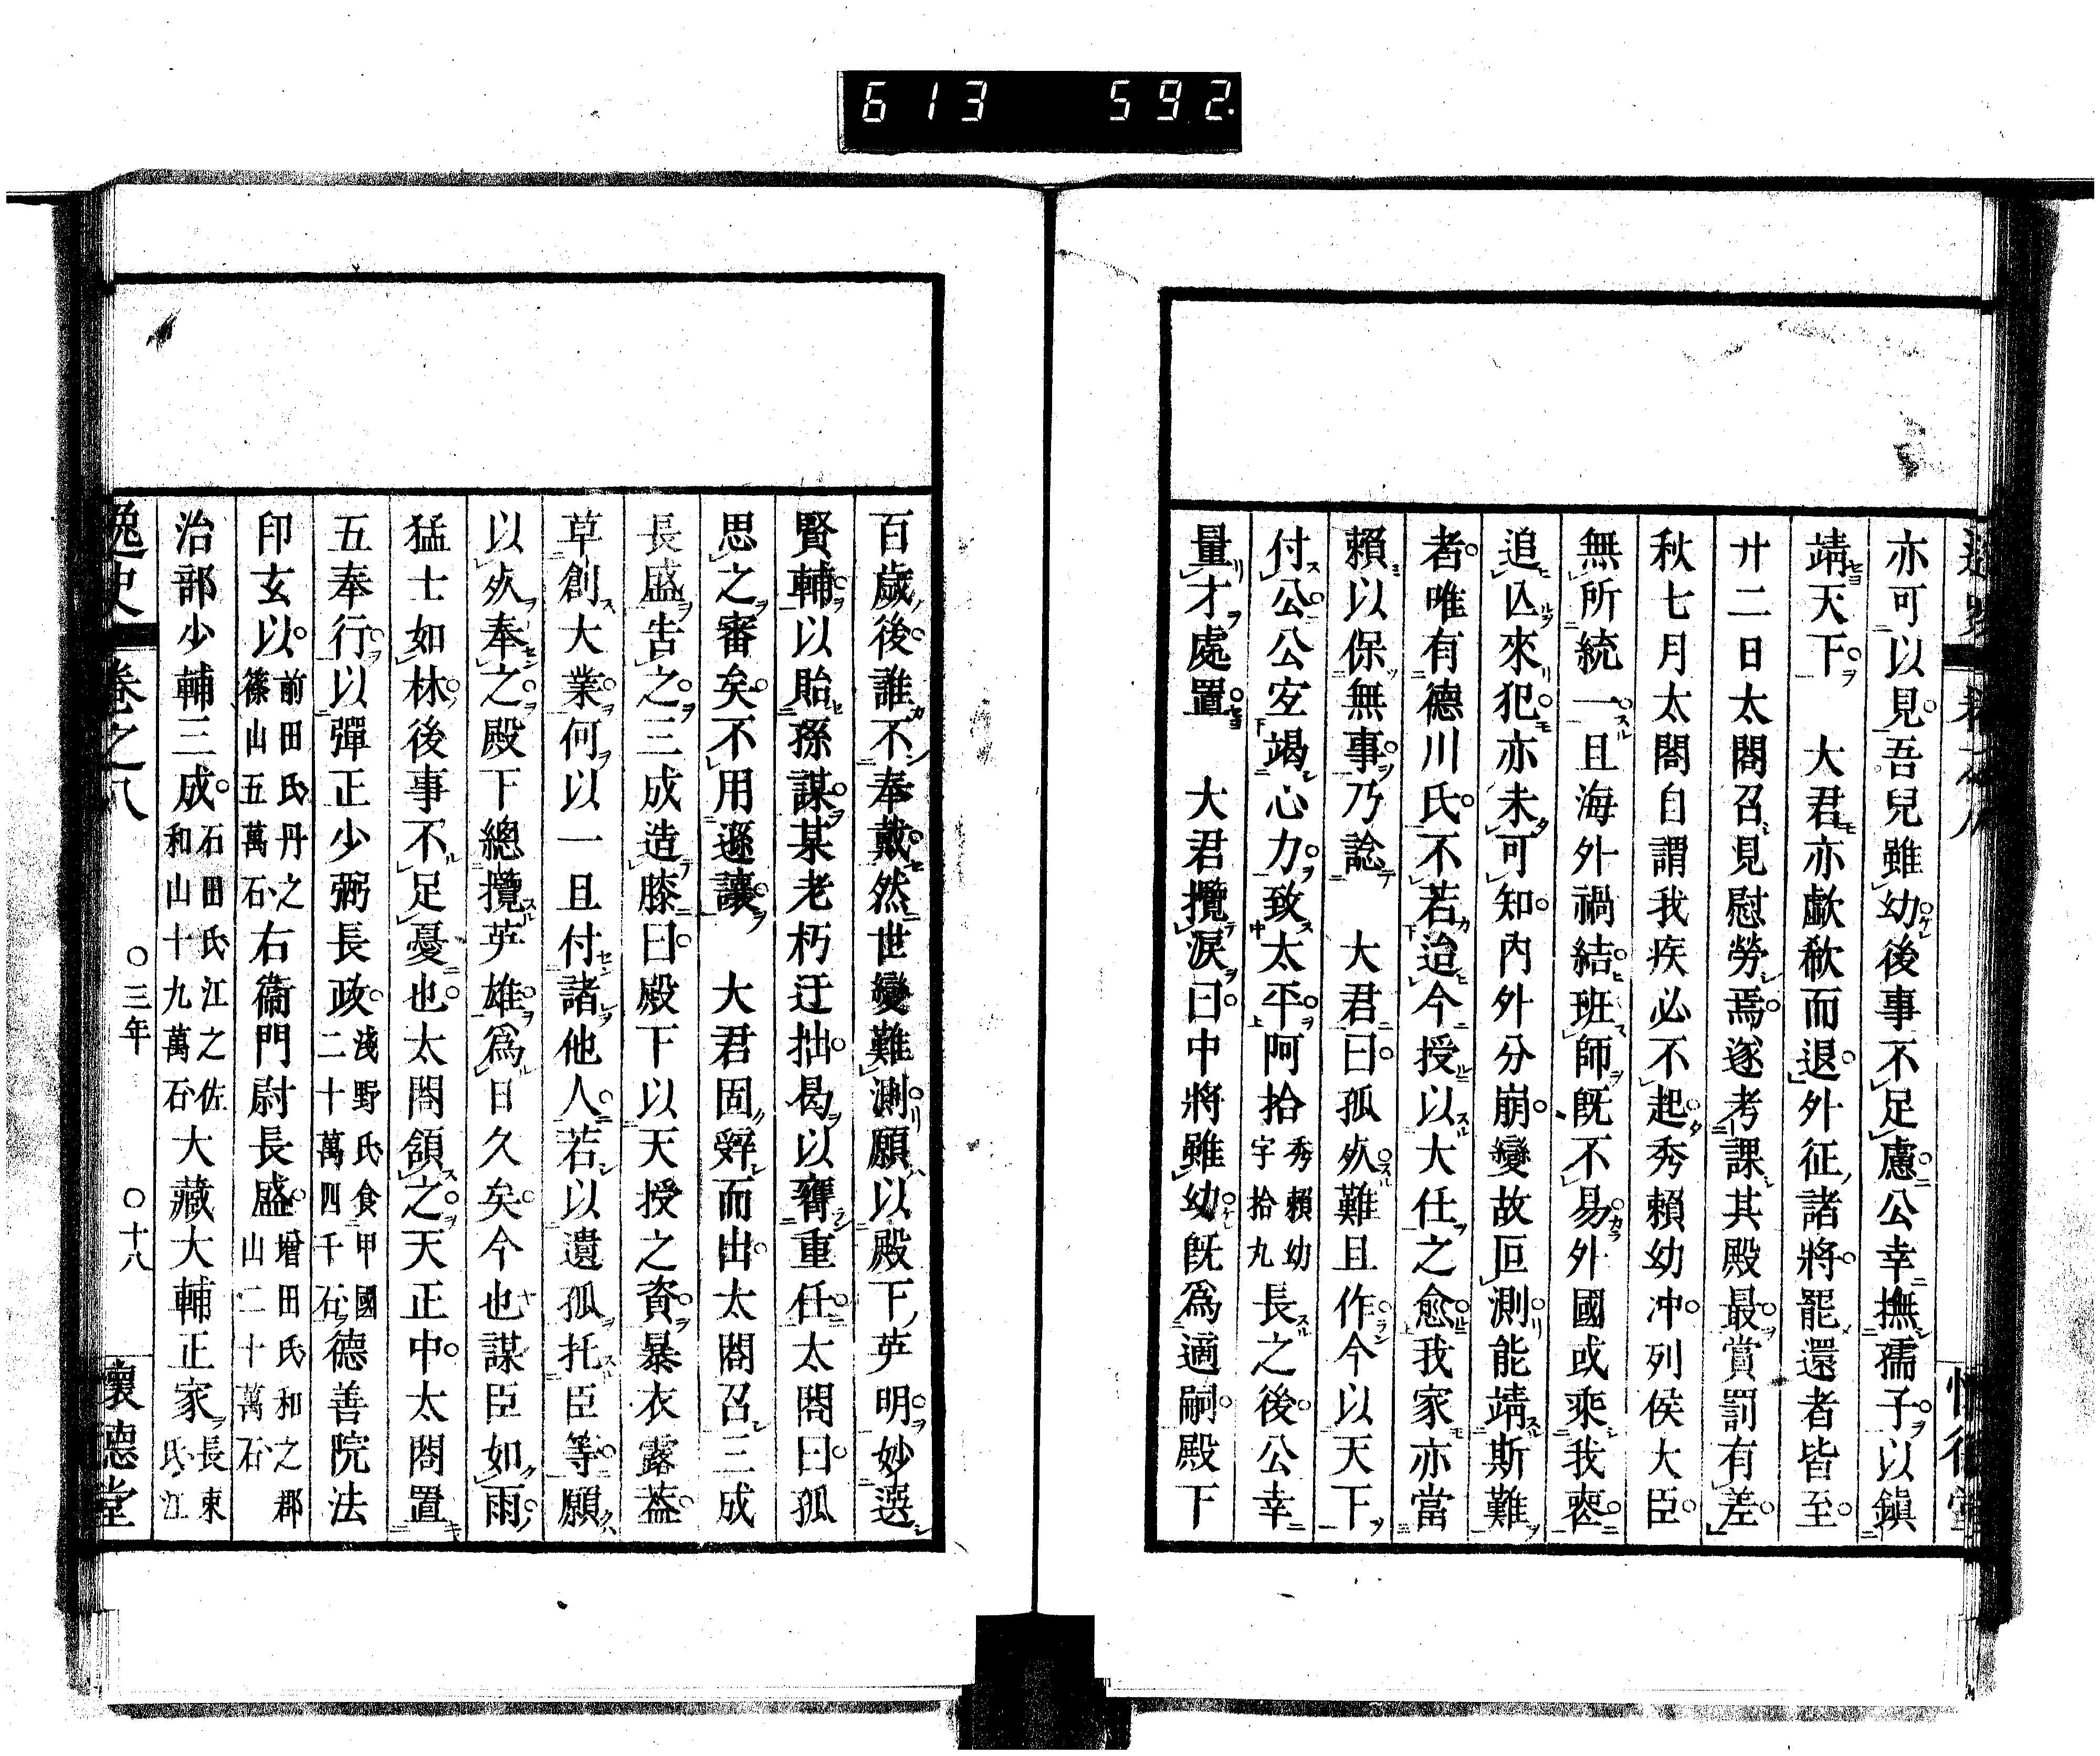 613 592.
亦可以見吾兒雖幼後事不足慮公幸撫孺子以鎭
靖天下 大君亦歔欷而退外征諸將罷還者皆至
廿二日太閤召見慰勞焉遂考課其殿最賞罰有差
秋七月太閤自謂我疾必不起秀賴幼冲列侯大臣
無所統一且海外禍結班師旣不易外國或乘我喪
追亾來犯亦未可知內外分崩變故叵測能靖斯難
者唯有德川氏不若迨今授以大任之愈我家亦當
賴以保無事乃諗 大君曰孤歿難且作今以天下
付公公宜竭心力致太平阿拾秀賴幼字拾九長之後公幸
量才處置 大君攬淚曰中將雖幼旣爲適嗣殿下
百歲後誰不奉戴然世變難測願以殿下英明妙選
賢輔以貽孫謀某老朽迂拙曷以膺重任太閤曰孤
思之審矣不用遜讓 大君固辭而出太閤召三成
長盛告之三成造膝曰殿下以天授之資暴衣露蓋
草創大業何以一旦付諸他人若以遺孤托臣等願
以歿奉之殿下總攬英雄爲日久矣今也謀臣如雨
猛士如林後事不足憂也太閤頷之天正中太閤置
五奉行以彈正少弼長政淺野氏食甲國二十萬四千石德善院法
印玄以前田氏丹之篠山五萬石右衞門尉長盛增田氏和之郡山二十萬石
治部少輔三成石田氏江之佐和山十九萬石大藏大輔正家長束氏江
逸史 卷之八 〇三年 〇十八 懷德堂